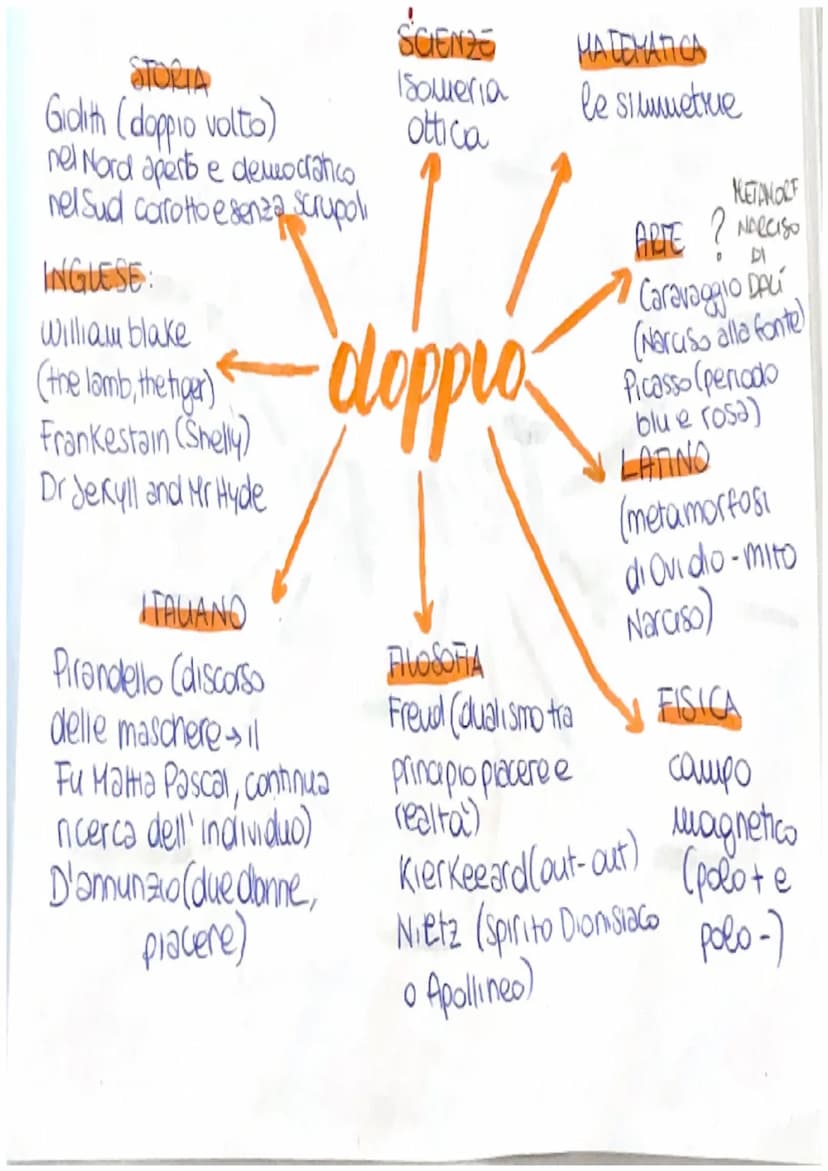 STORIA
Giolitti (doppio volto)
nel Nord aperto e democratico
nel Sud corotto e senza scrupoli
SCIENZE
Isomeria
ottica
MATEMATICA
le simmetrie
INGLESE:
William blake
(the lamb, the tiger)
Frankestain (Shelly)
Dr Jekyll and Mr Hyde
doppio
ARTE ?
METAMORF
NARCISO
DI
DALÍ
Caravaggio
(Narciso alla fonte)
Picasso (periodo
blu e rosa)
LATINO
(metamorfosi
di Ovidio - mito
Narciso)
ITALIANO
Pirandello (discorso
delle maschere → il
Fu Mattia Pascal, continua
ricerca dell'individuo)
D'annunzio (due donne,
piacere)
FILOSOFIA
Freud (dualismo tra
principio piacere e
realtà)
Kierkeeard (aut-aut)
Nietz (Spirito Dionisiaco
o Apollineo)
FISICA
campo
magnetico
(polo + e
polo -)